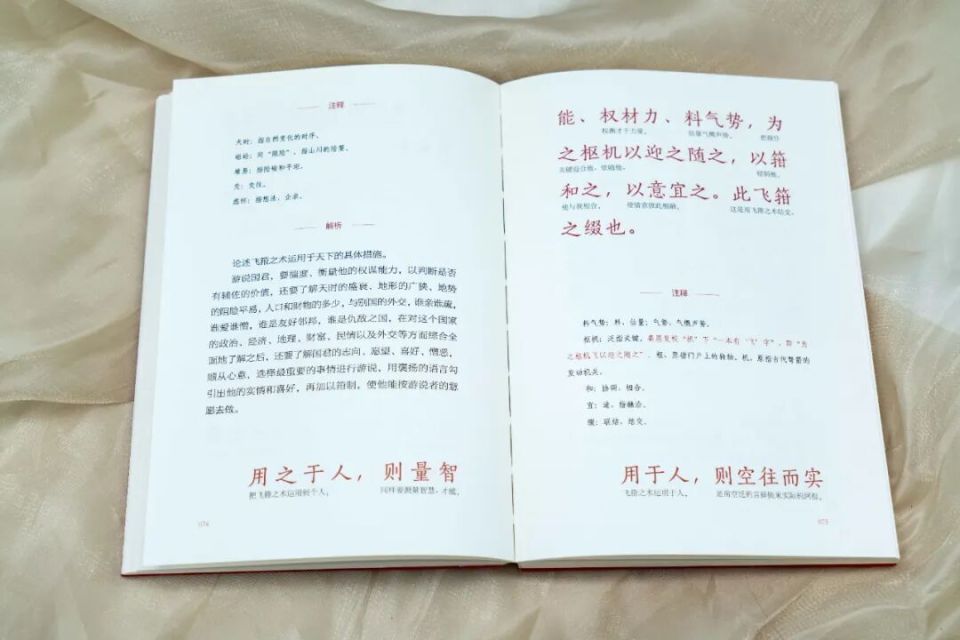 注释
天时：指自然变化的时序。
岨崄：同“阻险”，指山川的险要。
难易：指险峻和平坦。
交：交往。
意怀：指想法、企求。
解析
论述飞箝之术运用于天下的具体措施。
游说国君，要揣度、衡量他的权谋能力，以判断是否
有辅佐的价值，还要了解天时的盛衰、地形的广狭、地势
的阻险平易，人口和财物的多少，与别国的外交，谁亲谁疏，
谁爱谁憎，谁是友好邻邦，谁是仇敌之国，在对这个国家
的政治、经济、地理、财富、民情以及外交等方面综合全
面地了解之后，还要了解国君的志向、愿望、喜好、憎恶，
顺从心意，选择最重要的事情进行游说，用褒扬的语言勾
引出他的实情和喜好，再加以箝制，使他能按游说者的意
愿去做。
用之于人，则量智
把飞箝之术运用到个人，
同样要测量智慧、才能，
074
能、权材力、料气势，为
权衡才干力量，
估量气概声势，
把握住
之枢机以迎之随之，以箝
关键迎合他、依随他，
和之，以意宜之。此飞箝
使与我相合，
使情意彼此相融，
这是用飞箝之术结交。
之缀也。
注释
料气势：料，估量；气势，气概声势。
枢机：泛指关键。
和：协调，相合。
宜：适，指融洽。
缀：联结，结交。
用于人，则空往而实
飞箝之术运用于人，
075